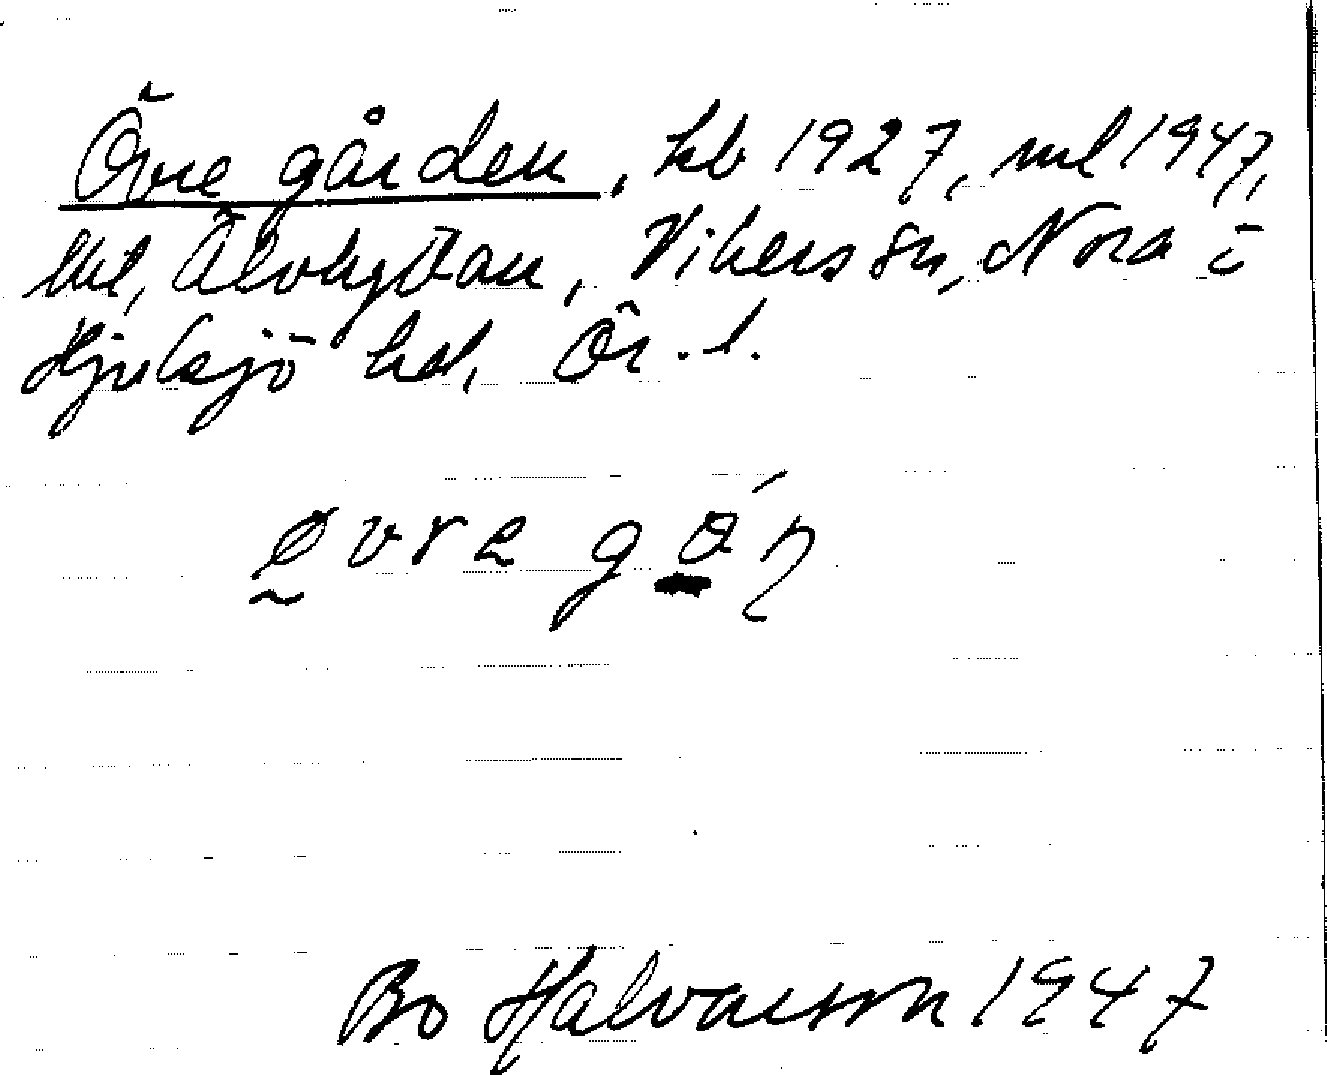 Övre gården, kb 1927, ml 1947,
Älvhyttan, Vikers sn, Nora i
Hjulsjö hd, Ör. l.
Bo Halvarsson 1947